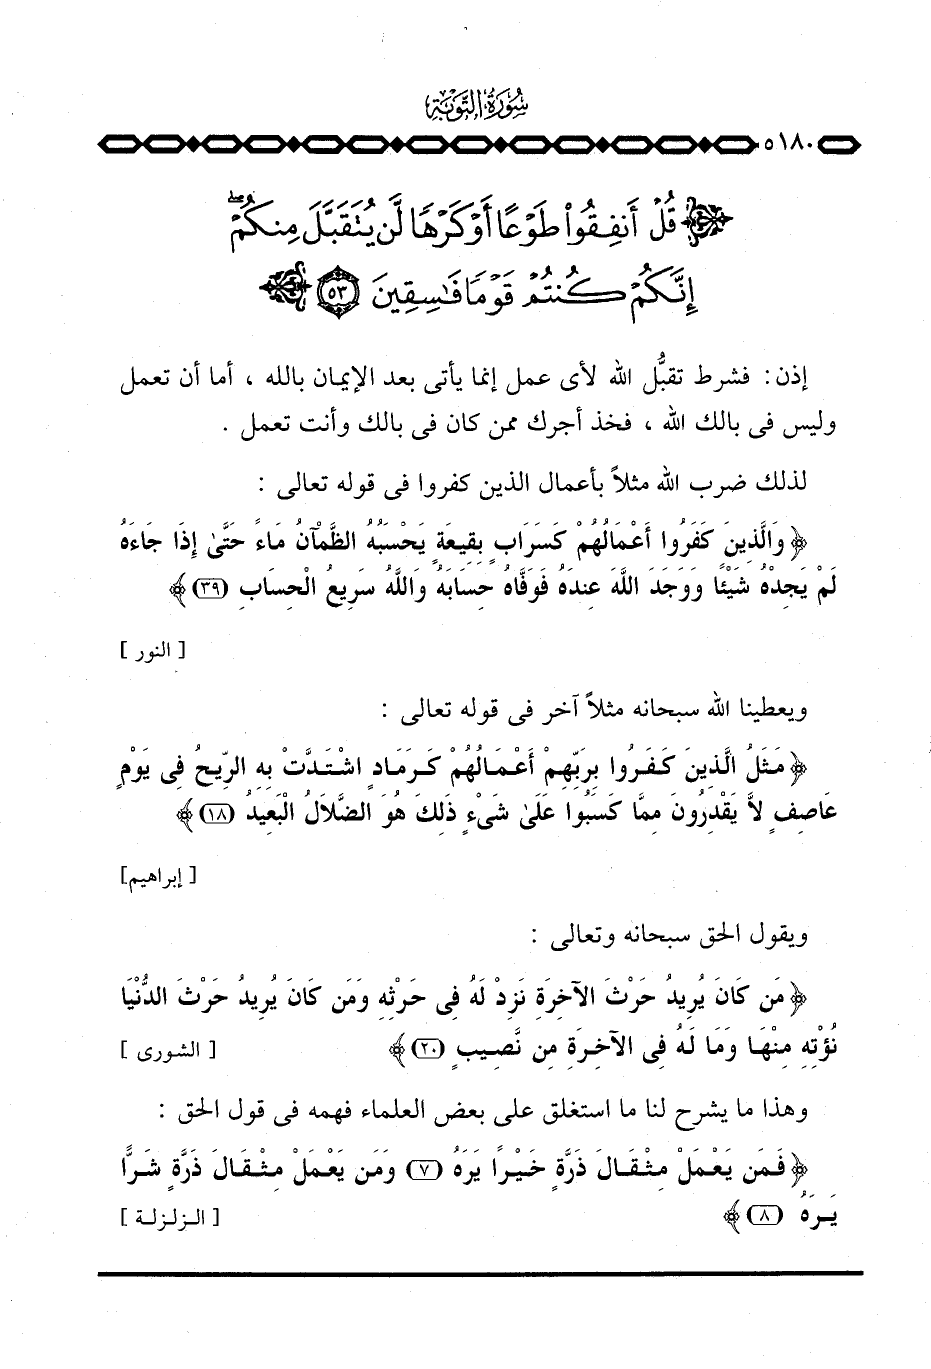 سُورَةُ التَّوْبَةِ
٥١٨٠
قُلْ أَنفِقُوا۟ طَوْعًا أَوْ كَرْهًا لَّن يُتَقَبَّلَ مِنكُمْ ۖ
إِنَّكُمْ كُنتُمْ قَوْمًا فَـٰسِقِينَ ٥٣
إذن : فشرط تقبُّل الله لأى عمل إنما يأتى بعد الإيمان بالله ، أما أن تعمل
وليس فى بالك الله ، فخذ أجرك ممن كان فى بالك وأنت تعمل .
لذلك ضرب الله مثلاً بأعمال الذين كفروا فى قوله تعالى :
﴿ وَالَّذِينَ كَفَرُوا أَعْمَالُهُمْ كَسَرَابٍ بِقِيعَةٍ يَحْسَبُهُ الظَّمْآنُ مَاءً حَتَّىٰ إِذَا جَاءَهُ
لَمْ يَجِدْهُ شَيْئًا وَوَجَدَ اللَّهَ عِندَهُ فَوَفَّاهُ حِسَابَهُ وَاللَّهُ سَرِيعُ الْحِسَابِ (٣٩) ﴾
[ النور ]
ويعطينا الله سبحانه مثلاً آخر فى قوله تعالى :
﴿ مَثَلُ الَّذِينَ كَفَرُوا بِرَبِّهِمْ أَعْمَالُهُمْ كَرَمَادٍ اشْتَدَّتْ بِهِ الرِّيحُ فِى يَوْمٍ
عَاصِفٍ لاَّ يَقْدِرُونَ مِمَّا كَسَبُوا عَلَىٰ شَىْءٍ ذَلِكَ هُوَ الضَّلَالُ الْبَعِيدُ (١٨) ﴾
[ إبراهيم]
ويقول الحق سبحانه وتعالى :
﴿ مَن كَانَ يُرِيدُ حَرْثَ الآخِرَةِ نَزِدْ لَهُ فِى حَرْثِهِ وَمَن كَانَ يُرِيدُ حَرْثَ الدُّنْيَا
نُؤْتِهِ مِنْهَا وَمَا لَهُ فِى الآخِرَةِ مِن نَّصِيبٍ (٢٠) ﴾ [ الشورى ]
وهذا ما يشرح لنا ما استغلق على بعض العلماء فهمه فى قول الحق :
﴿ فَمَن يَعْمَلْ مِثْقَالَ ذَرَّةٍ خَيْرًا يَرَهُ (٧) وَمَن يَعْمَلْ مِثْقَالَ ذَرَّةٍ شَرًّا
يَرَهُ (٨) ﴾ [ الزلزلة ]